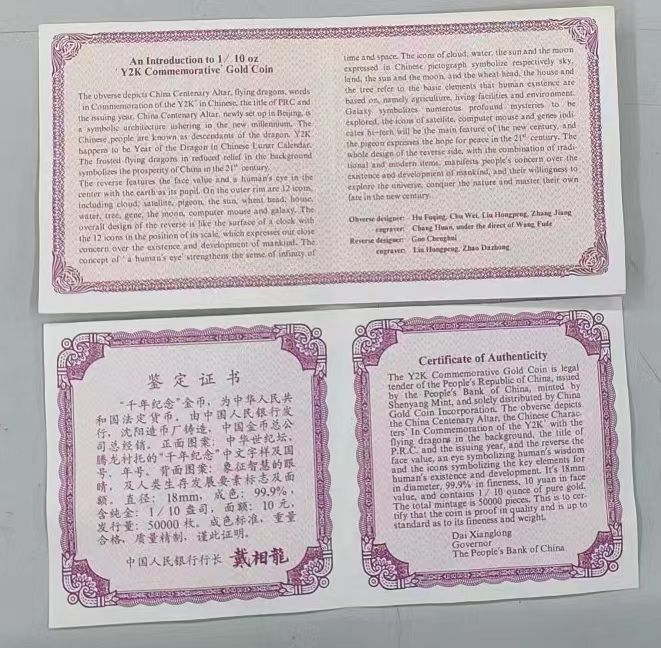 An Introduction to 1/10 oz
Y2K Commemorative Gold Coin
The obverse depicts China Centenary Altar, flying dragons, words
in Commemoration of the Y2K' in Chinese, the title of PRC and
the issuing year. China Centenary Altar, newly set up in Beijing, is
a symbolic architecture ushering in the new millennium. The
Chinese people are known as descendants of the dragon. Y2K
happens to be Year of the Dragon in Chinese Lunar Calendar.
The frosted flying dragons in reduced relief in the background
symbolizes the prosperity of China in the 21st century.
The reverse features the face value and a human's eye in the
center with the earth as its pupil. On the outer rim are 12 icons,
including cloud, satellite, pigeon, the sun, wheat head, house,
water, tree, gene, the moon, computer mouse and galaxy. The
overall design of the reverse is like the surface of a clock with
the 12 icons in the position of its scale, which expresses out close
concern over the existence and development of mankind. The
concept of 'a human's eye' strengthens the sense of infinity of
time and space. The icons of cloud, water, the sun and the moon
expressed in Chinese pictograph symbolize respectively sky,
land, the sun and the moon, and the wheat head, the house and
the tree refer to the basic elements that human existence are
based on, namely agriculture, living facilities and environment.
Galaxy symbolizes numerous profound mysteries to be
explored, the icons of satellite, computer mouse and genes indi-
cates hi-tech will be the main feature of the new century, and
the pigeon expresses the hope for peace in the 21st century. The
whole design of the reverse side, with the combination of tradi-
tional and modern items, manifests people's concern over the
existence and development of mankind, and their willingness to
explore the universe, conquer the nature and master their own
fate in the new century.
Obverse designer: Hu Fuqing, Chu Wei, Liu Hongpeng, Zhang Jiang
engraver: Chang Huan, under the direct of Wang Fude
Reverse designer: Guo Chenghui
engraver: Liu Hongpeng, Zhao Dazhong
鉴定证书
“千年纪念”金币，为中华人民共
和国法定货币，由中国人民银行发
行，沈阳造币厂铸造，中国金币总公
司总经销。正面图案：中华世纪坛，
腾龙衬托的“千年纪念”中文字样及国
号、年号。背面图案：象征智慧的眼
睛，及人类生存发展要素标志及面
额。直径：18mm，成色：99.9%，
含纯金：1/10盎司，面额：10元，
发行量：50000枚。成色标准，重量
合格，质量精制，谨此证明。
中国人民银行行长 戴相龍
Certificate of Authenticity
The Y2K Commemorative Gold Coin is legal
tender of the People's Republic of China, issued
by the People's Bank of China, minted by
Shenyang Mint, and solely distributed by China
Gold Coin Incorporation. The obverse depicts
the China Centenary Altar, the Chinese Charac-
ters' In Commemoration of the Y2K' with the
flying dragons in the background, the title of
P.R.C. and the issuing year, and the reverse the
face value, an eye symbolizing human's wisdom
and the icons symbolizing the key elements for
human's existence and development. It's 18mm
in diameter, 99.9% in fineness, 10 yuan in face
value, and contains 1/10 ounce of pure gold.
The total mintage is 50000 pieces. This is to cer-
tify that the coin is proof in quality and is up to
standard as to its fineness and weight.
Dai Xianglong
Governor
The People's Bank of China